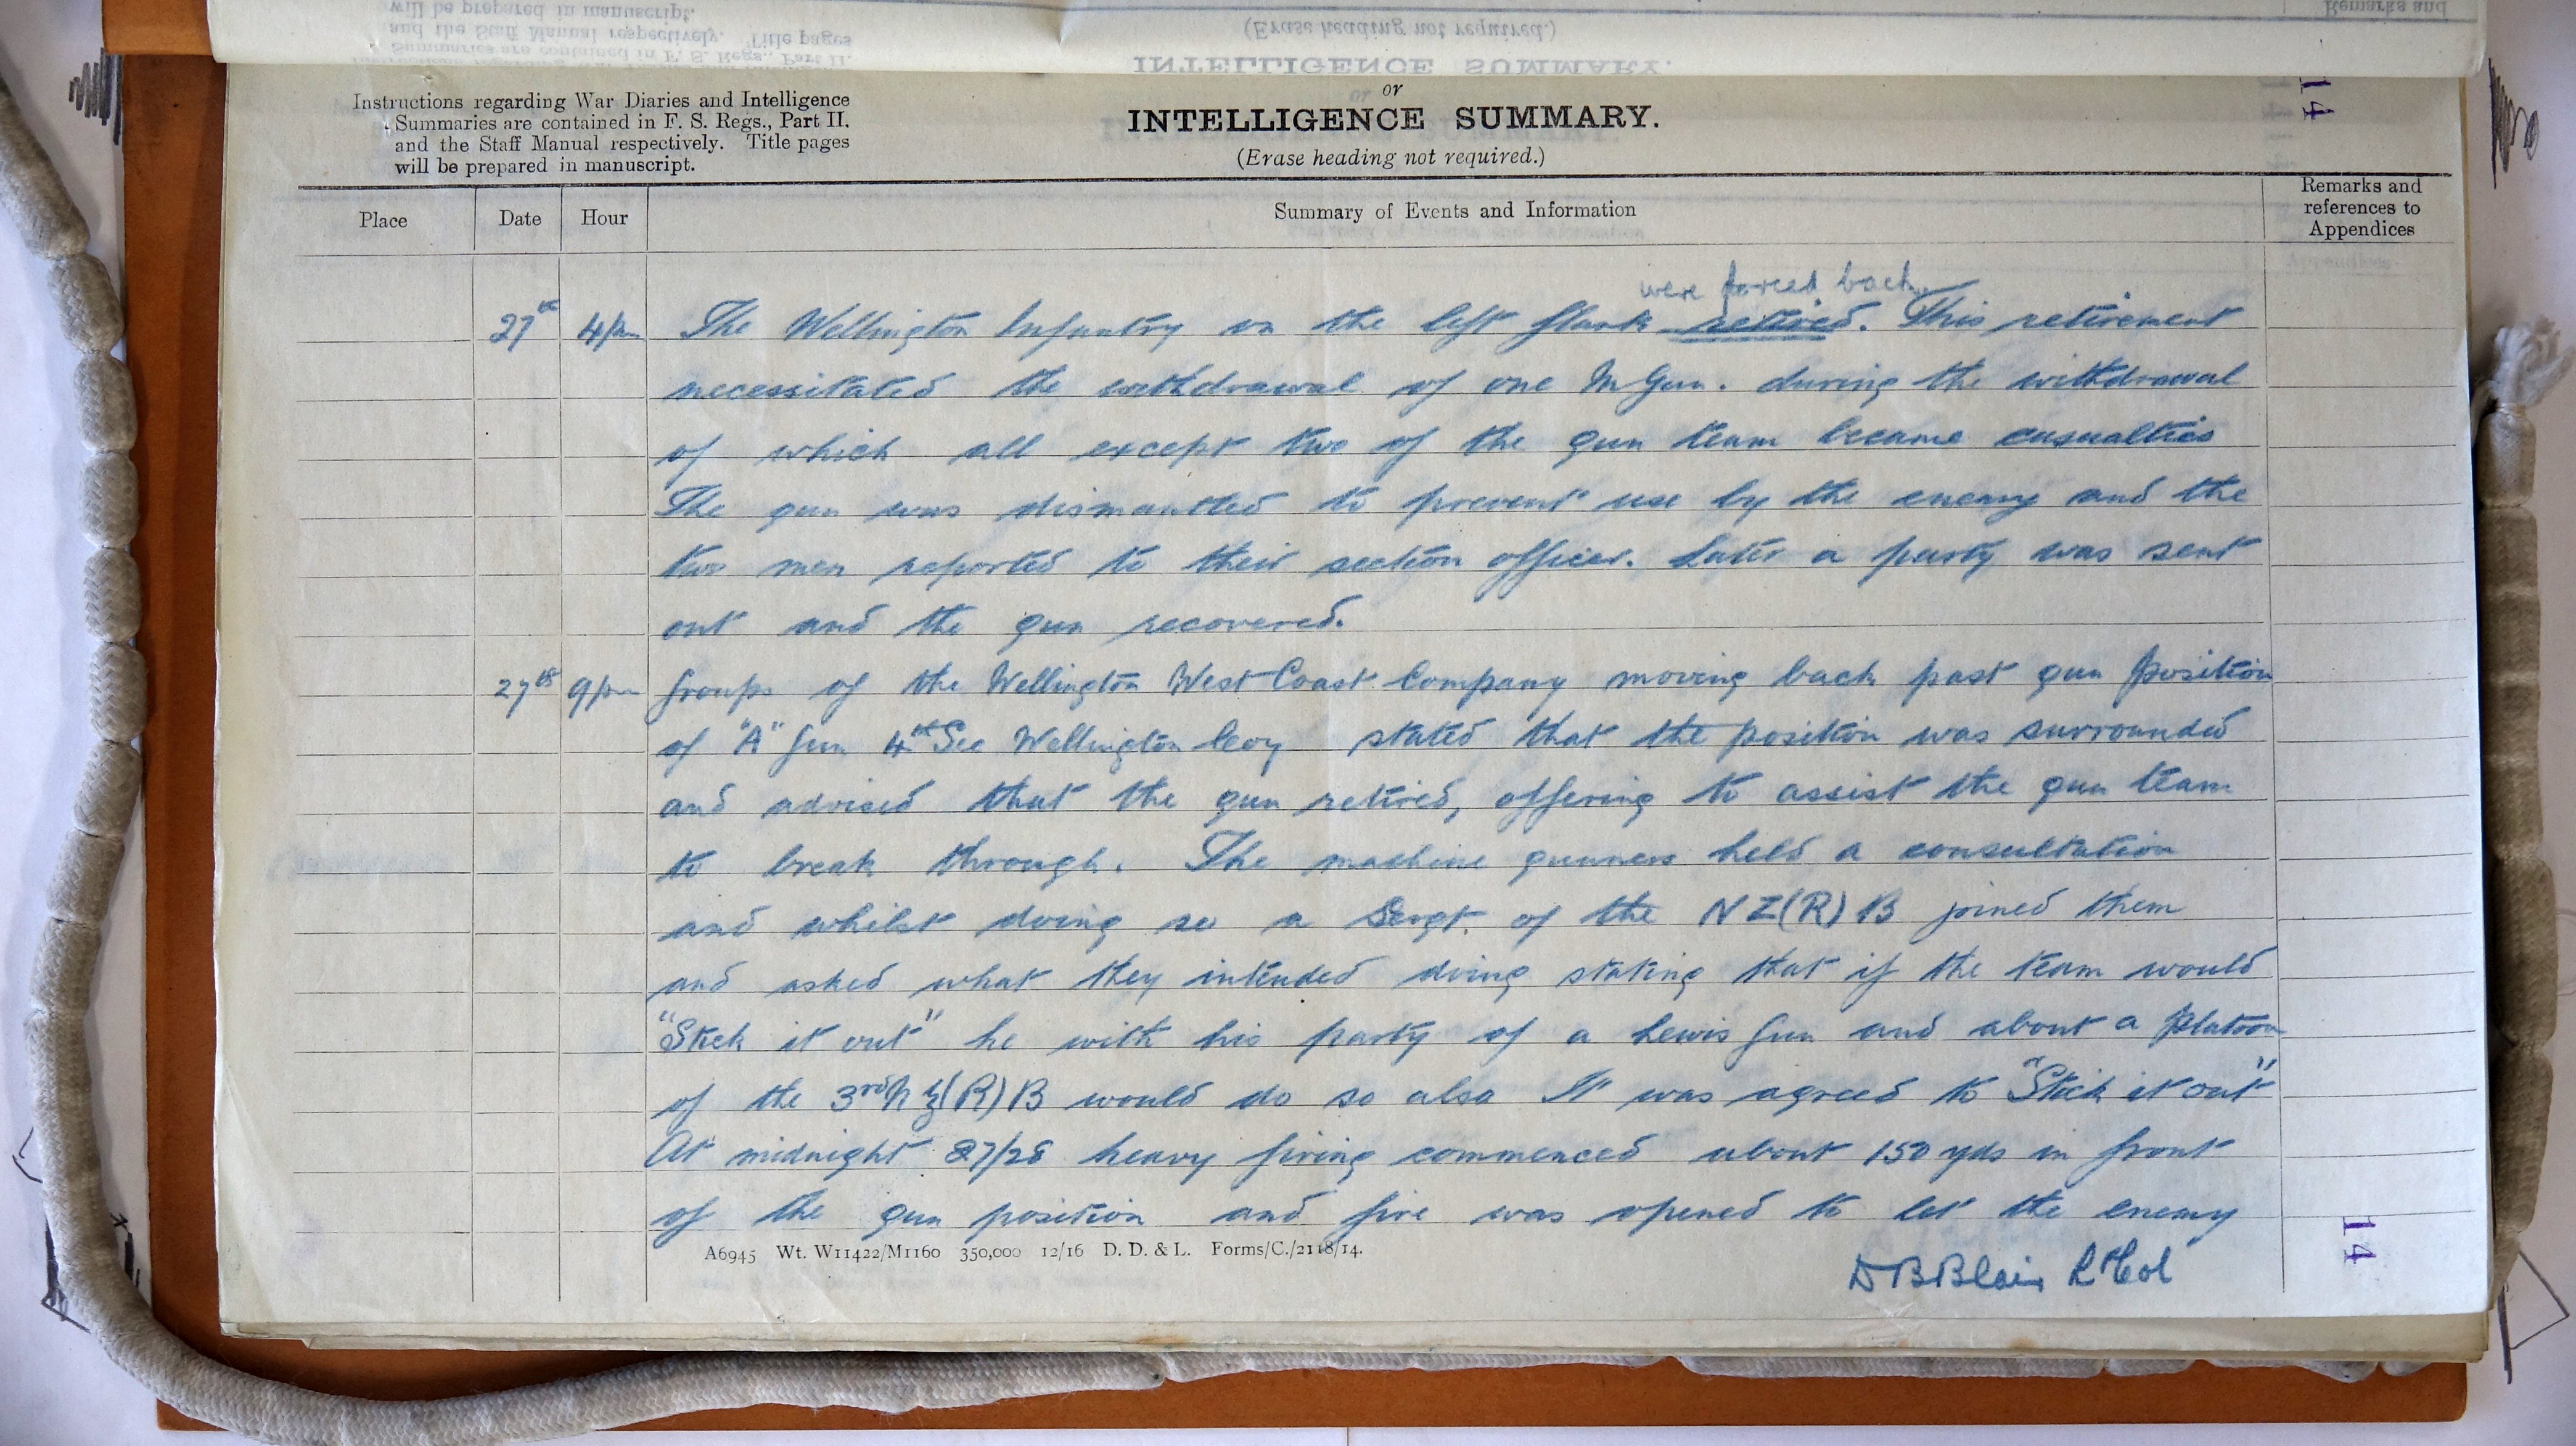 will be prepared in manuscript.
and the Staff Manual respectively. Title pages
Summaries are contained in F. S. Regs., Part II.
(Erase heading not required.)
INTELLIGENCE SUMMARY.
Remarks and
Instructions regarding War Diaries and Intelligence
Summaries are contained in F. S. Regs., Part II.
and the Staff Manual respectively. Title pages
will be prepared in manuscript.
or
INTELLIGENCE SUMMARY.
(Erase heading not required.)
14
Place Date Hour Summary of Events and Information Remarks and references to Appendices
were forced back.
27th 4pm The Wellington Infantry on the left flank retired. This retirement
necessitated the withdrawal of one M Gun. during the withdrawal
of which all except two of the gun team became casualties
The gun was dismantled to prevent use by the enemy and the
two men reported to their section officer. Later a party was sent
out and the gun recovered.
27th 9pm Groups of the Wellington West Coast Company moving back past gun position
of "A" Gun 4th Sec Wellington Coy stated that the position was surrounded
and advised that the gun retired, offering to assist the gun team
to break through. The machine gunners held a consultation
and whilst doing so a Sergt. of the NZ(R)B joined them
and asked what they intended doing stating that if the team would
"Stick it out" he with his party of a Lewis Gun and about a Platoon
of the 3rd NZ(R)B would do so also It was agreed to "Stick it out"
At midnight 27/28 heavy firing commenced about 150 yds in front
of the gun position and fire was opened to let the enemy
A6945 Wt. W11422/M1160 350,000 12/16 D. D. & L. Forms/C./2118/14.
D B Blair Lt Col
14